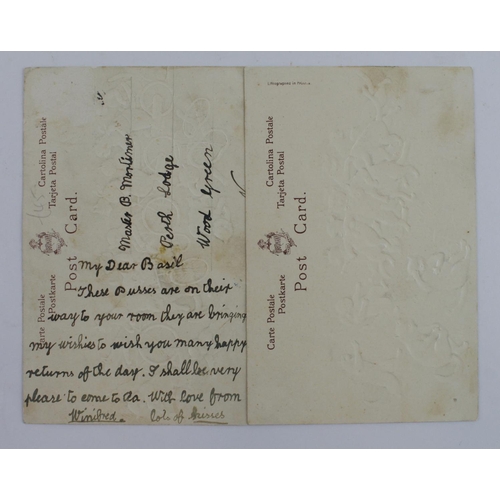 Carte Postale Cartolina Postale
Postkarte Tarjeta Postal
Post Card.
Master B. Mortimer
Perth Lodge
Wood Green
My Dear Basil
These Pusses are on their
way to your room they are bringing
my wishes to wish you many happy
returns of the day. I shall be very
please to come to tea. With love from
Winifred. Lots of kisses
Carte Postale Cartolina Postale
Postkarte Tarjeta Postal
Post Card.